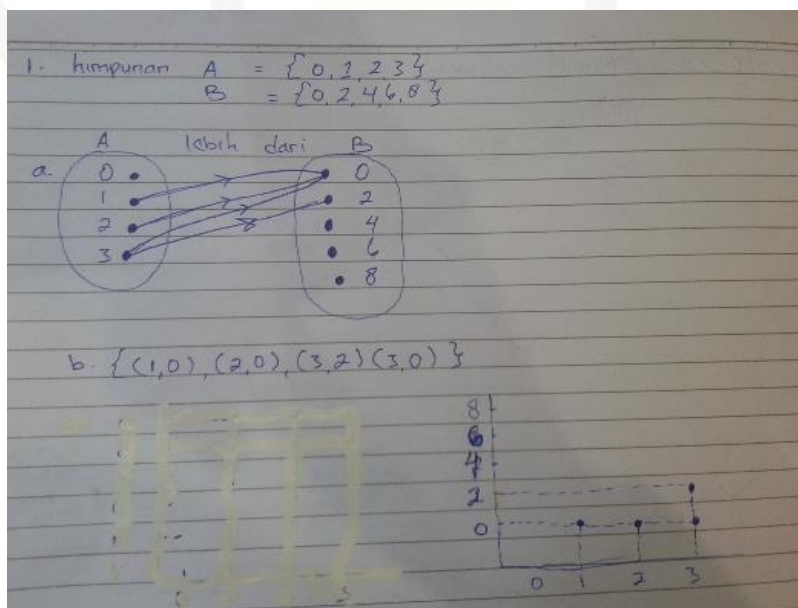 1. himpunan A = {0,1,2,3}
B = {0,2,4,6,8}
A lebih dari B
a. 0 0
1 2
2 4
3 6
8
b. {(1,0),(2,0),(3,2)(3,0)}
8
6
4
2
0
0 1 2 3